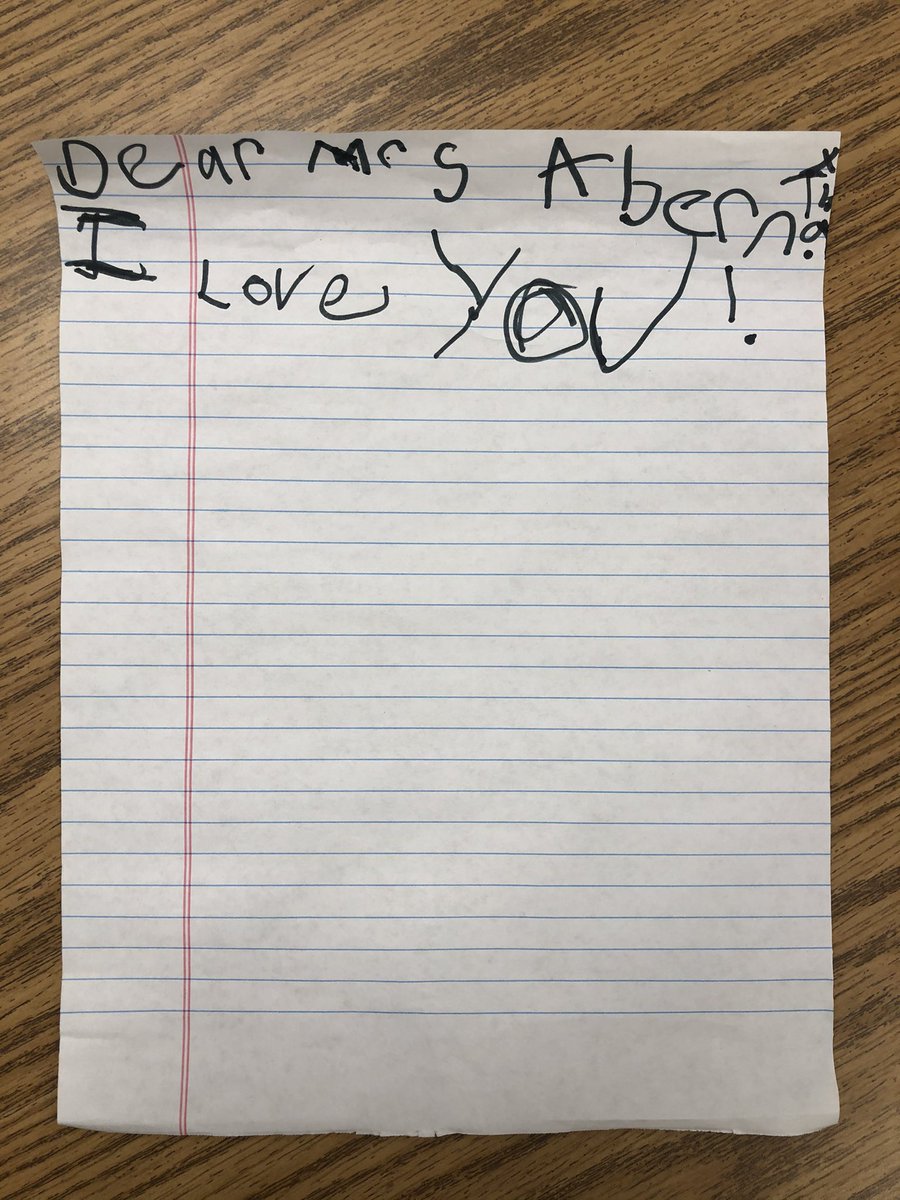 Dear Mrs Abern
I Love You!